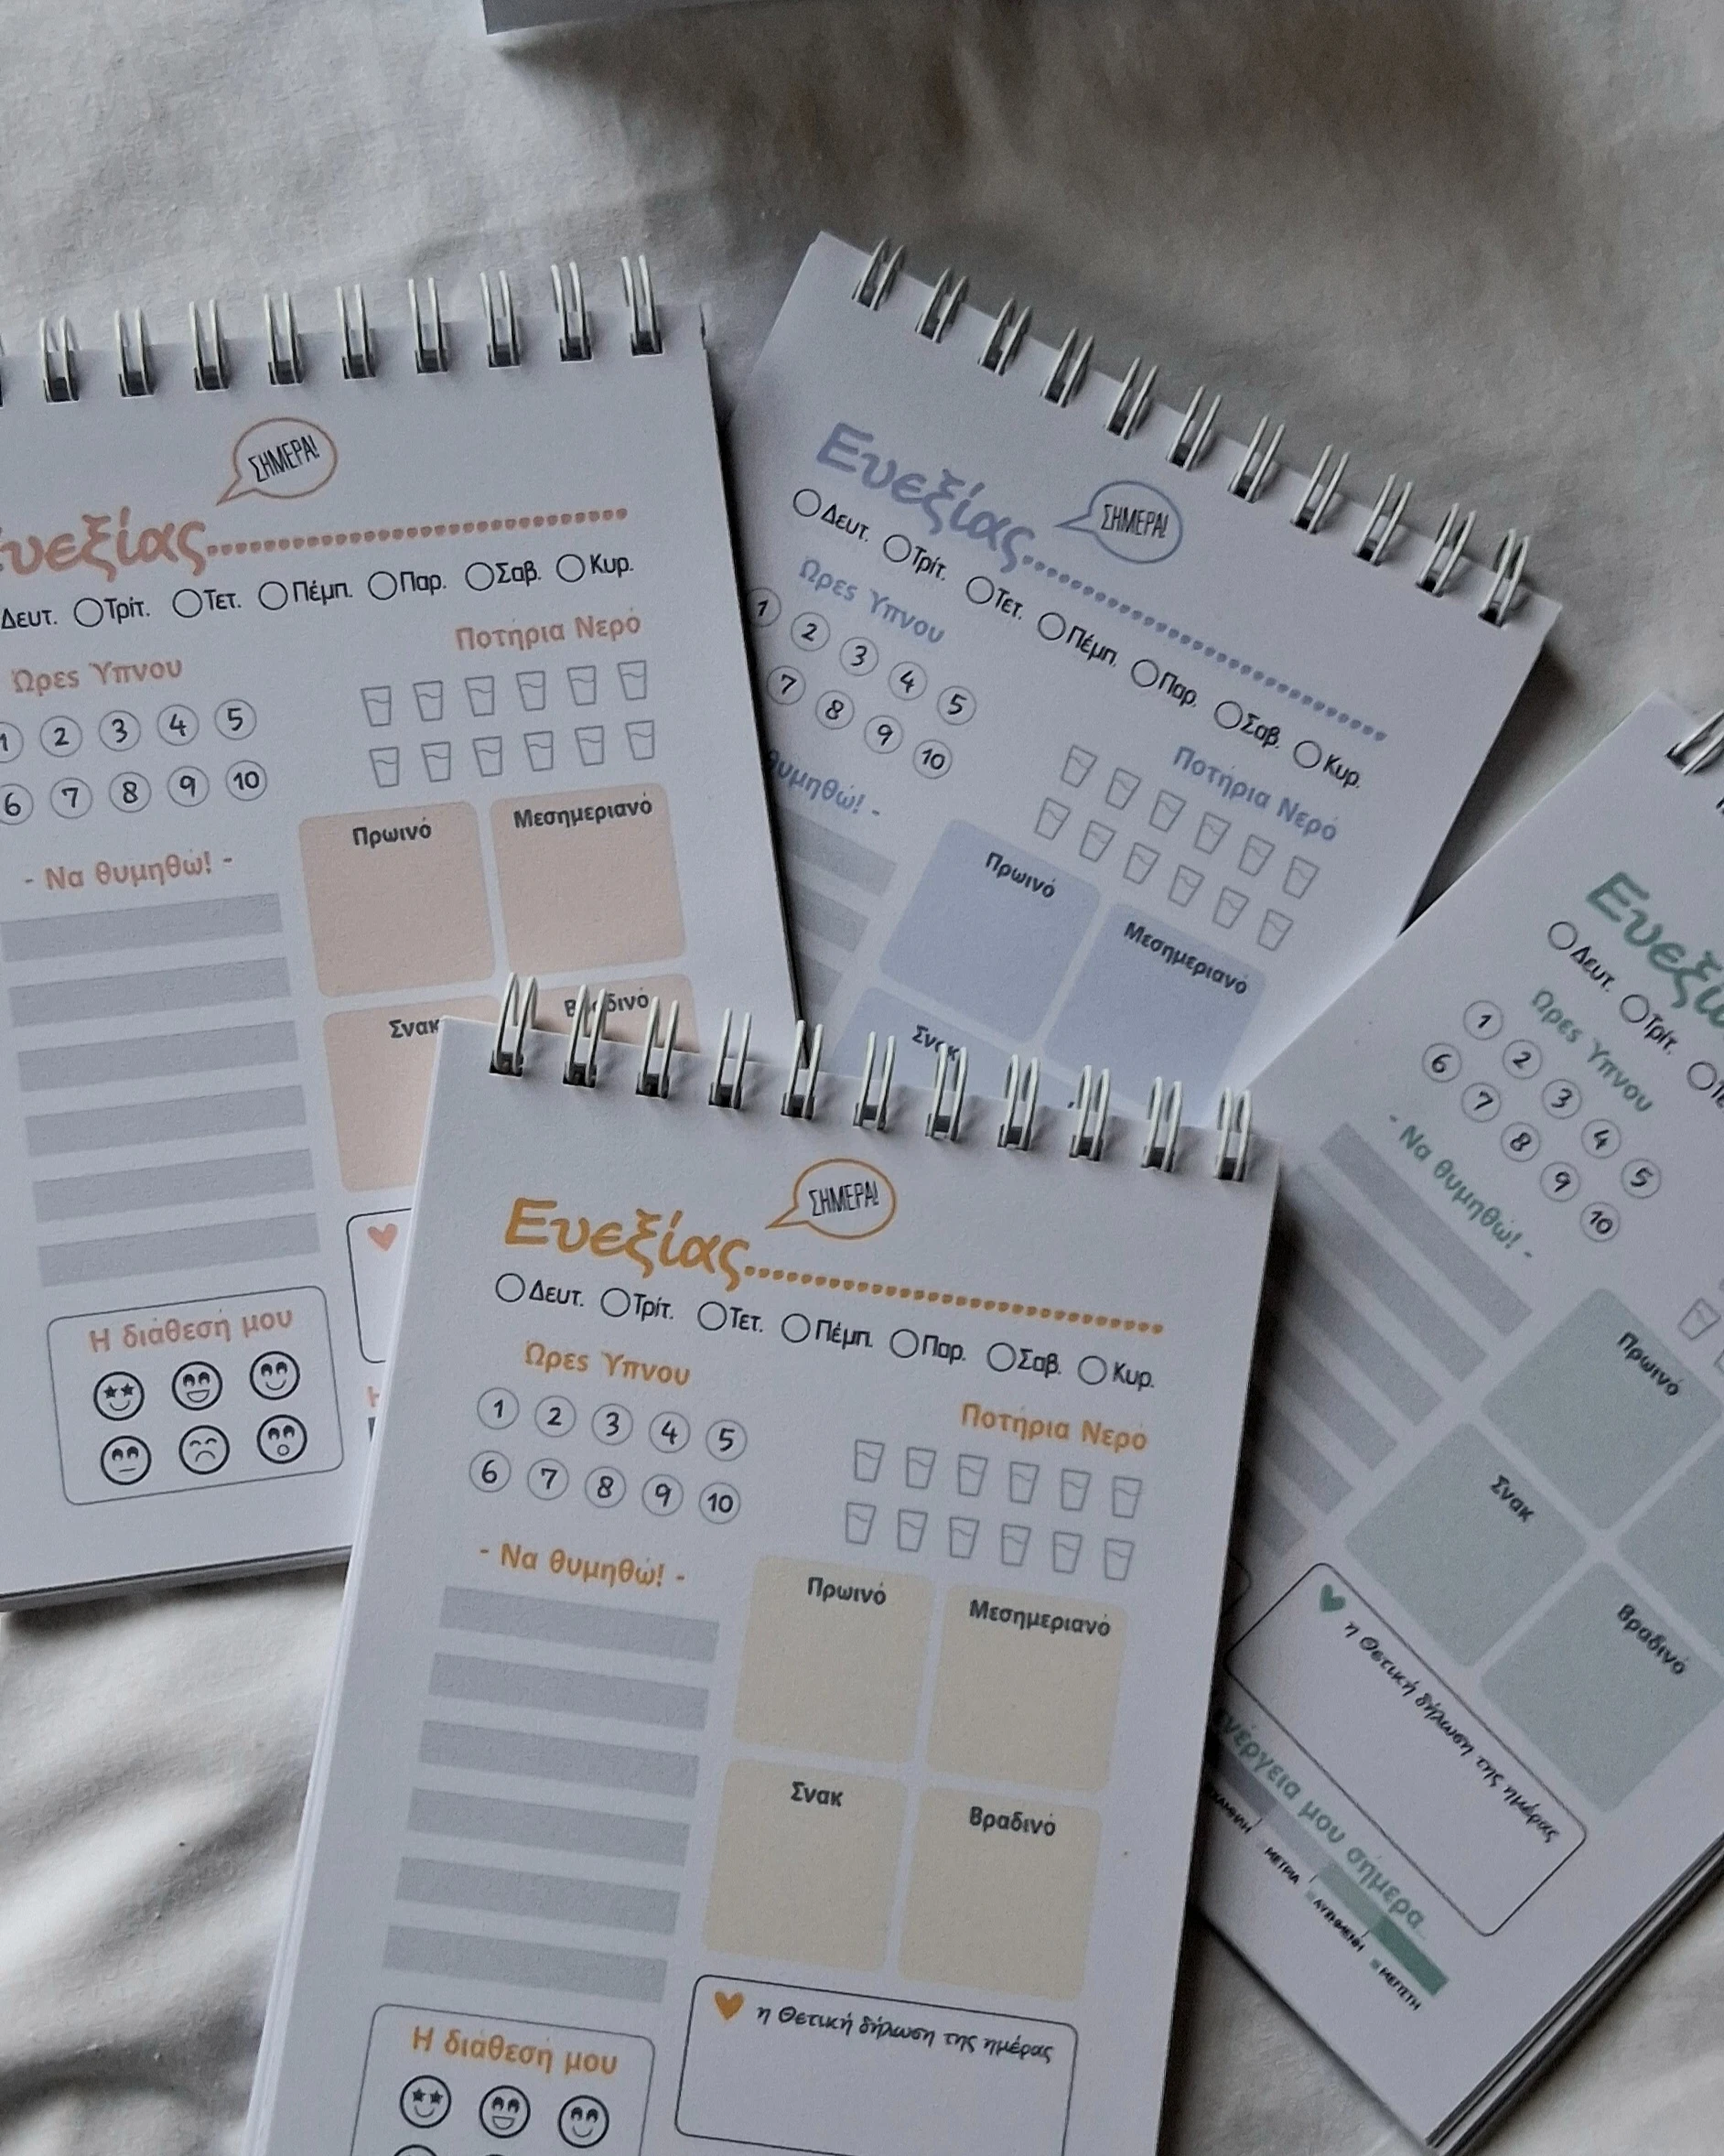 ΣΗΜΕΡΑ!
Ευεξίας
Δευτ. Τρίτ. Τετ. Πέμπ. Παρ. Σαβ. Κυρ.
Ώρες Ύπνου
Ποτήρια Νερό
1 2 3 4 5
6 7 8 9 10
- Να θυμηθώ! -
Πρωινό Μεσημεριανό
Σνακ
Η διάθεσή μου
Ευεξίας
ΣΗΜΕΡΑ!
Δευτ. Τρίτ. Τετ. Πέμπ. Παρ. Σαβ. Κυρ.
Ώρες Ύπνου
Ποτήρια Νερό
1 2 3 4 5
7 8 9 10
Πρωινό Μεσημεριανό
Σνακ
Δευτ. Τρίτ.
Ώρες Ύπνου
1 2 3 4 5
6 7 8 9 10
- Να θυμηθώ! -
Πρωινό
Σνακ
Βραδινό
η Θετική δήλωση της ημέρας
μου σήμερα...
ΜΕΤΡΙΑ
ΑΥΞΗΜΕΝΗ
ΜΕΓΙΣΤΗ
ΣΗΜΕΡΑ!
Ευεξίας
Δευτ. Τρίτ. Τετ. Πέμπ. Παρ. Σαβ. Κυρ.
Ώρες Ύπνου
Ποτήρια Νερό
1 2 3 4 5
6 7 8 9 10
- Να θυμηθώ! -
Πρωινό Μεσημεριανό
Σνακ Βραδινό
η Θετική δήλωση της ημέρας
Η διάθεσή μου